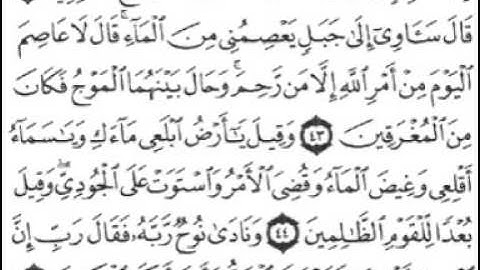 قَالَ سَـَٔاوِىٓ إِلَىٰ جَبَلٍ يَعْصِمُنِى مِنَ ٱلْمَآءِ ۚ قَالَ لَا عَاصِمَ
ٱلْيَوْمَ مِنْ أَمْرِ ٱللَّهِ إِلَّا مَن رَّحِمَ ۚ وَحَالَ بَيْنَهُمَا ٱلْمَوْجُ فَكَانَ
مِنَ ٱلْمُغْرَقِينَ ٤٣ وَقِيلَ يَٰٓأَرْضُ ٱبْلَعِى مَآءَكِ وَيَٰسَمَآءُ
أَقْلِعِى وَغِيضَ ٱلْمَآءُ وَقُضِىَ ٱلْأَمْرُ وَٱسْتَوَتْ عَلَى ٱلْجُودِىِّ ۖ وَقِيلَ
بُعْدًا لِّلْقَوْمِ ٱلظَّٰلِمِينَ ٤٤ وَنَادَىٰ نُوحٌ رَّبَّهُۥ فَقَالَ رَبِّ إِنَّ